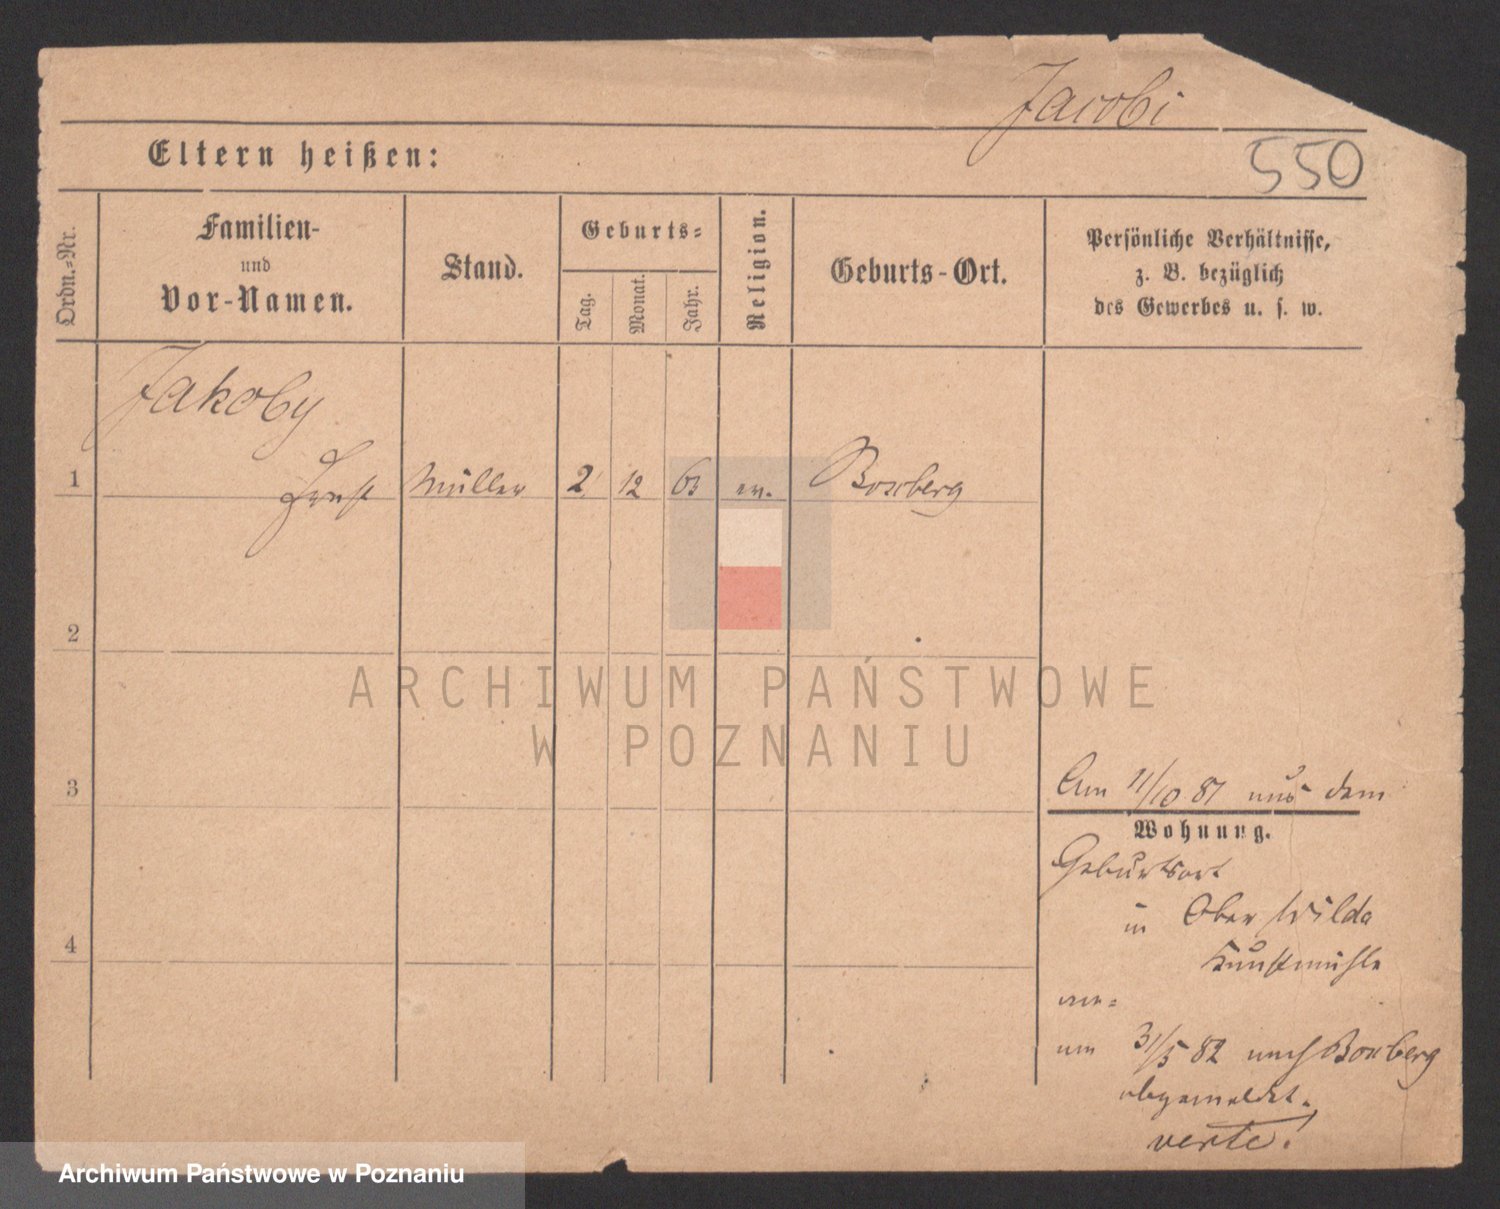 Jacobi
Eltern heißen:
550
Ordn.-Nr.
Familien-
und
Vor-Namen.
Stand.
Geburts-
Tag.
Monat.
Jahr.
Religion.
Geburts-Ort.
Persönliche Verhältnisse,
z. B. bezüglich
des Gewerbes u. s. w.
Jakoby
1 Ernst Müller 2 12 63 ev. Boxberg
2
3
4
Am 11/10 81 aus dem
Wohnung.
Geburtsort
in Ober Wilda
Kunstmühle
am 31/5 82 nach Boxberg
abgemeldet.
verte!
ARCHIWUM PAŃSTWOWE
W POZNANIU
Archiwum Państwowe w Poznaniu